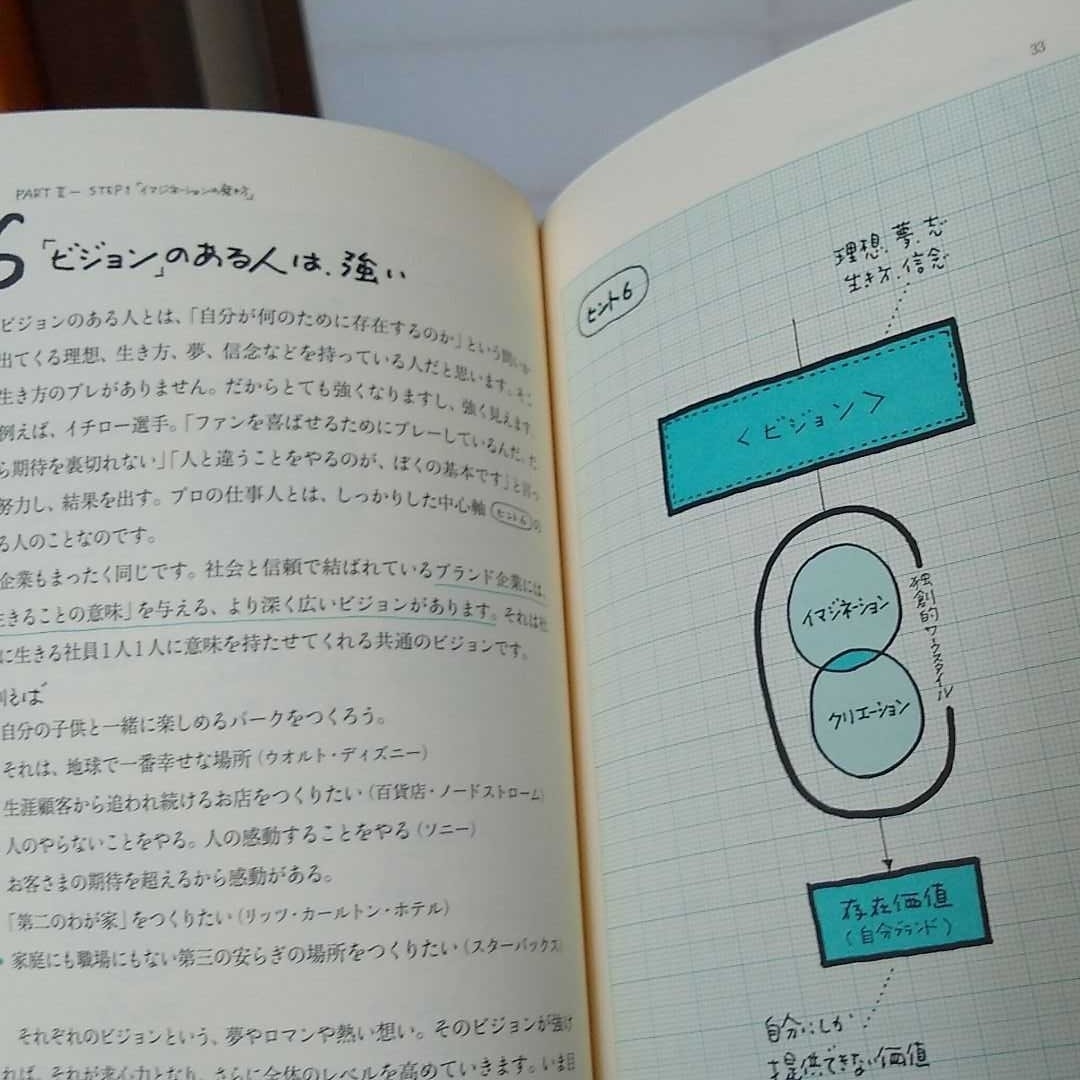 PART Ⅱ － STEP1「イマジネーションの発や方」
6 「ビジョン」のある人は、強い
ビジョンのある人とは、「自分が何のために存在するのか」という問いか
出てくる理想、生き方、夢、信念などを持っている人だと思います。そこ
生き方のブレがありません。だからとても強くなりますし、強く見えます。
例えば、イチロー選手。「ファンを喜ばせるためにプレーしているんだ。だ
ら期待を裏切れない」「人と違うことをやるのが、ぼくの基本です」と言っ
努力し、結果を出す。プロの仕事人とは、しっかりした中心軸 ヒント6 の
る人のことなのです。
企業もまったく同じです。社会と信頼で結ばれているブランド企業には、
生きることの意味」を与える、より深く広いビジョンがあります。それは社
に生きる社員1人1人に意味を持たせてくれる共通のビジョンです。
例えば
自分の子供と一緒に楽しめるパークをつくろう。
それは、地球で一番幸せな場所（ウオルト・ディズニー）
生涯顧客から追われ続けるお店をつくりたい（百貨店・ノードストローム）
人のやらないことをやる。人の感動することをやる（ソニー）
お客さまの期待を超えるから感動がある。
「第二のわが家」をつくりたい（リッツ・カールトン・ホテル）
家庭にも職場にもない第三の安らぎの場所をつくりたい（スターバックス）
それぞれのビジョンという、夢やロマンや熱い想い。そのビジョンが強け
れば、それが求心力となり、さらに全体のレベルを高めていきます。いま目
33
ヒント6
理想、夢、志
生き方、信念
＜ビジョン＞
イマジネーション
クリエーション
独創的ワークスタイル
存在価値
（自分ブランド）
自分にしか
提供できない価値